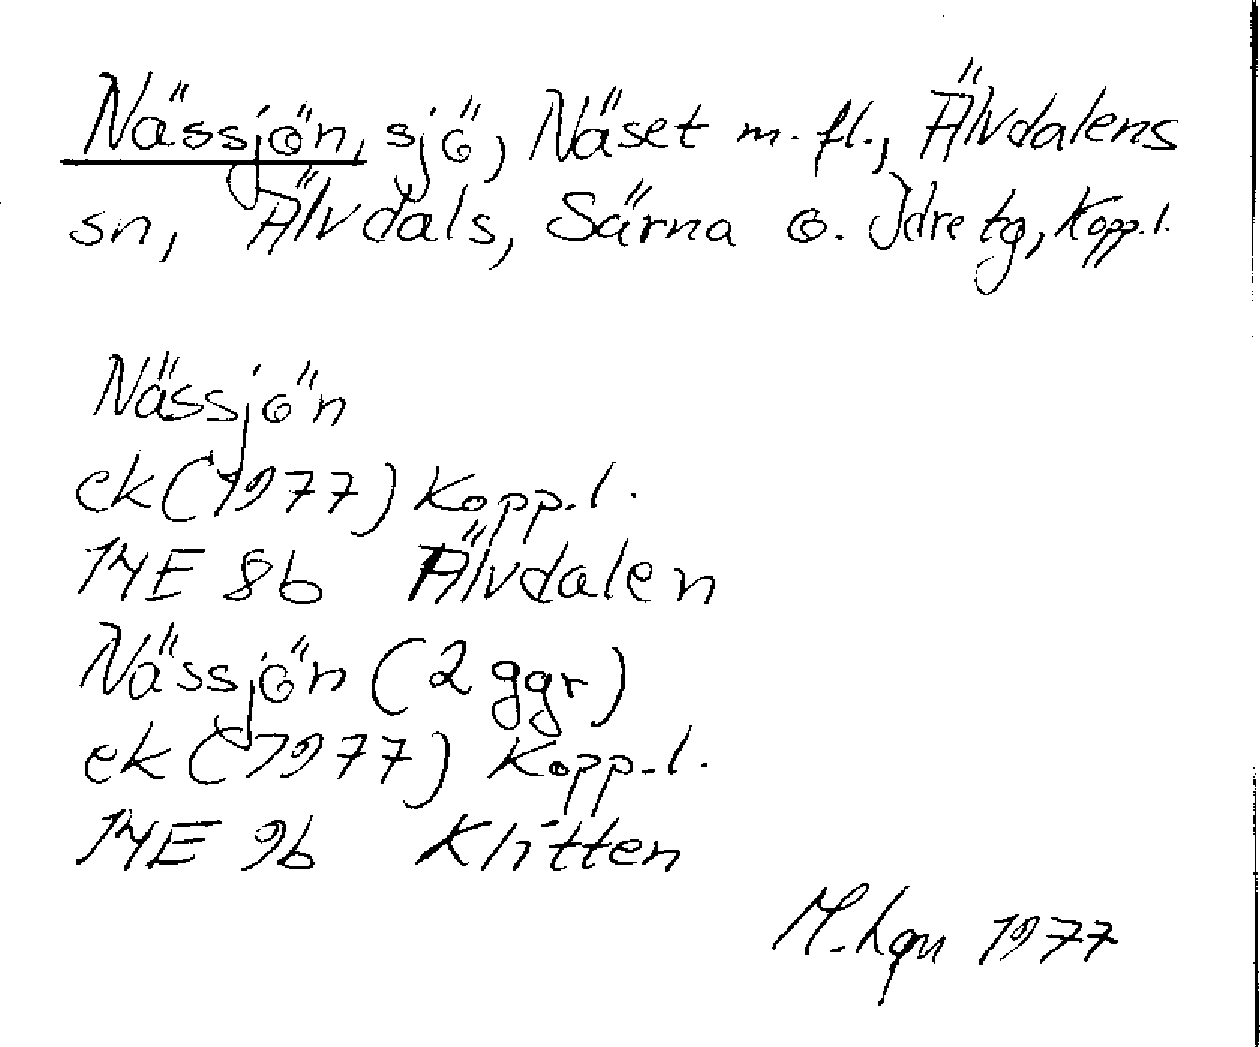 Nässjön, sjö, Näset m. fl., Älvdalens
sn, Älvdals, Särna o. Idre tg, Kopp. l.
Nässjön
ek (1977) Kopp. l.
14E 8b Älvdalen
Nässjön (2 ggr)
ek (1977) Kopp. l.
14E 9b Klitten
M. 1977